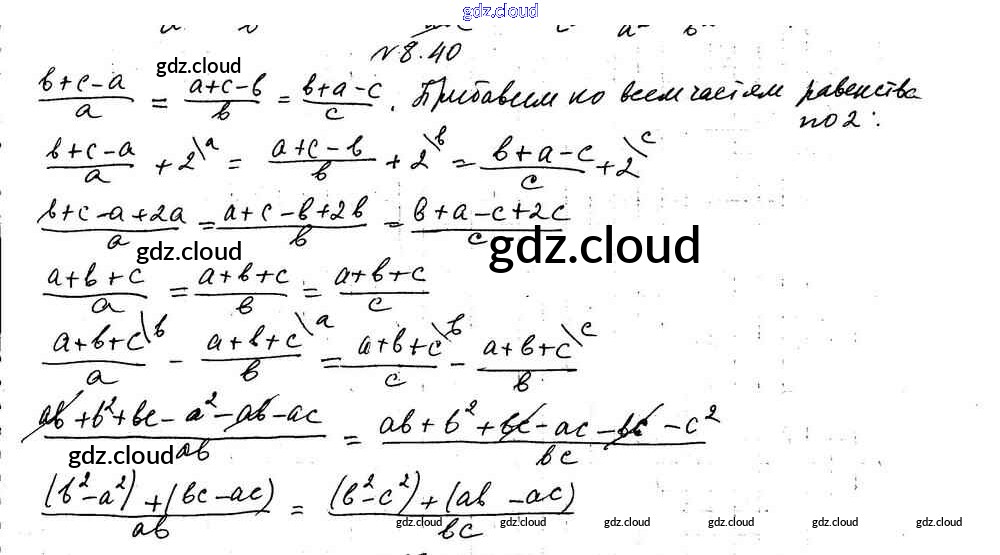 gdz.cloud
№8.40
(b+c-a)/a = (a+c-b)/b = (b+a-c)/c. Прибавим ко всем частям равенства
gdz.cloud
по 2:
(b+c-a)/a + 2\a = (a+c-b)/b + 2\b = (b+a-c)/c + 2\c
(b+c-a+2a)/a = (a+c-b+2b)/b = (b+a-c+2c)/c
gdz.cloud gdz.cloud
(a+b+c)/a = (a+b+c)/b = (a+b+c)/c
(a+b+c\b)/a - (a+b+c\a)/b = (a+b+c\b)/c - (a+b+c\c)/b
(ab+b²+bc-a²-ab-ac)/ab = (ab+b²+bc-ac-bc-c²)/bc
gdz.cloud
((b²-a²)+(bc-ac))/ab = ((b²-c²)+(ab-ac))/bc
gdz.cloud gdz.cloud gdz.cloud gdz.cloud gdz.cloud gdz.cloud